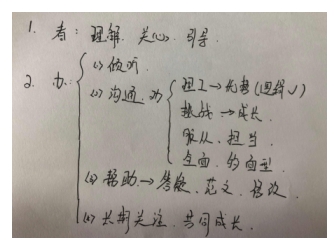 1. 看：理解. 关心. 引导.
2. 办：
(1) 倾听
(2) 沟通.
理工→优势(逻辑√)
挑战→成长.
服从、担当
全面、
(3) 帮助→答疑、范文、修改
(4) 长期关注、共同成长.